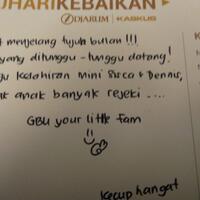 UHARIKEBAIKAN
DJARUM | KASKUS
menjelang tujuh bulan !!!
yang ditunggu-tunggu datang!
gu kelahiran mini Sisca & Dennis,
ak anak banyak rejeki ....
GBU your little fam
Kecup hangat